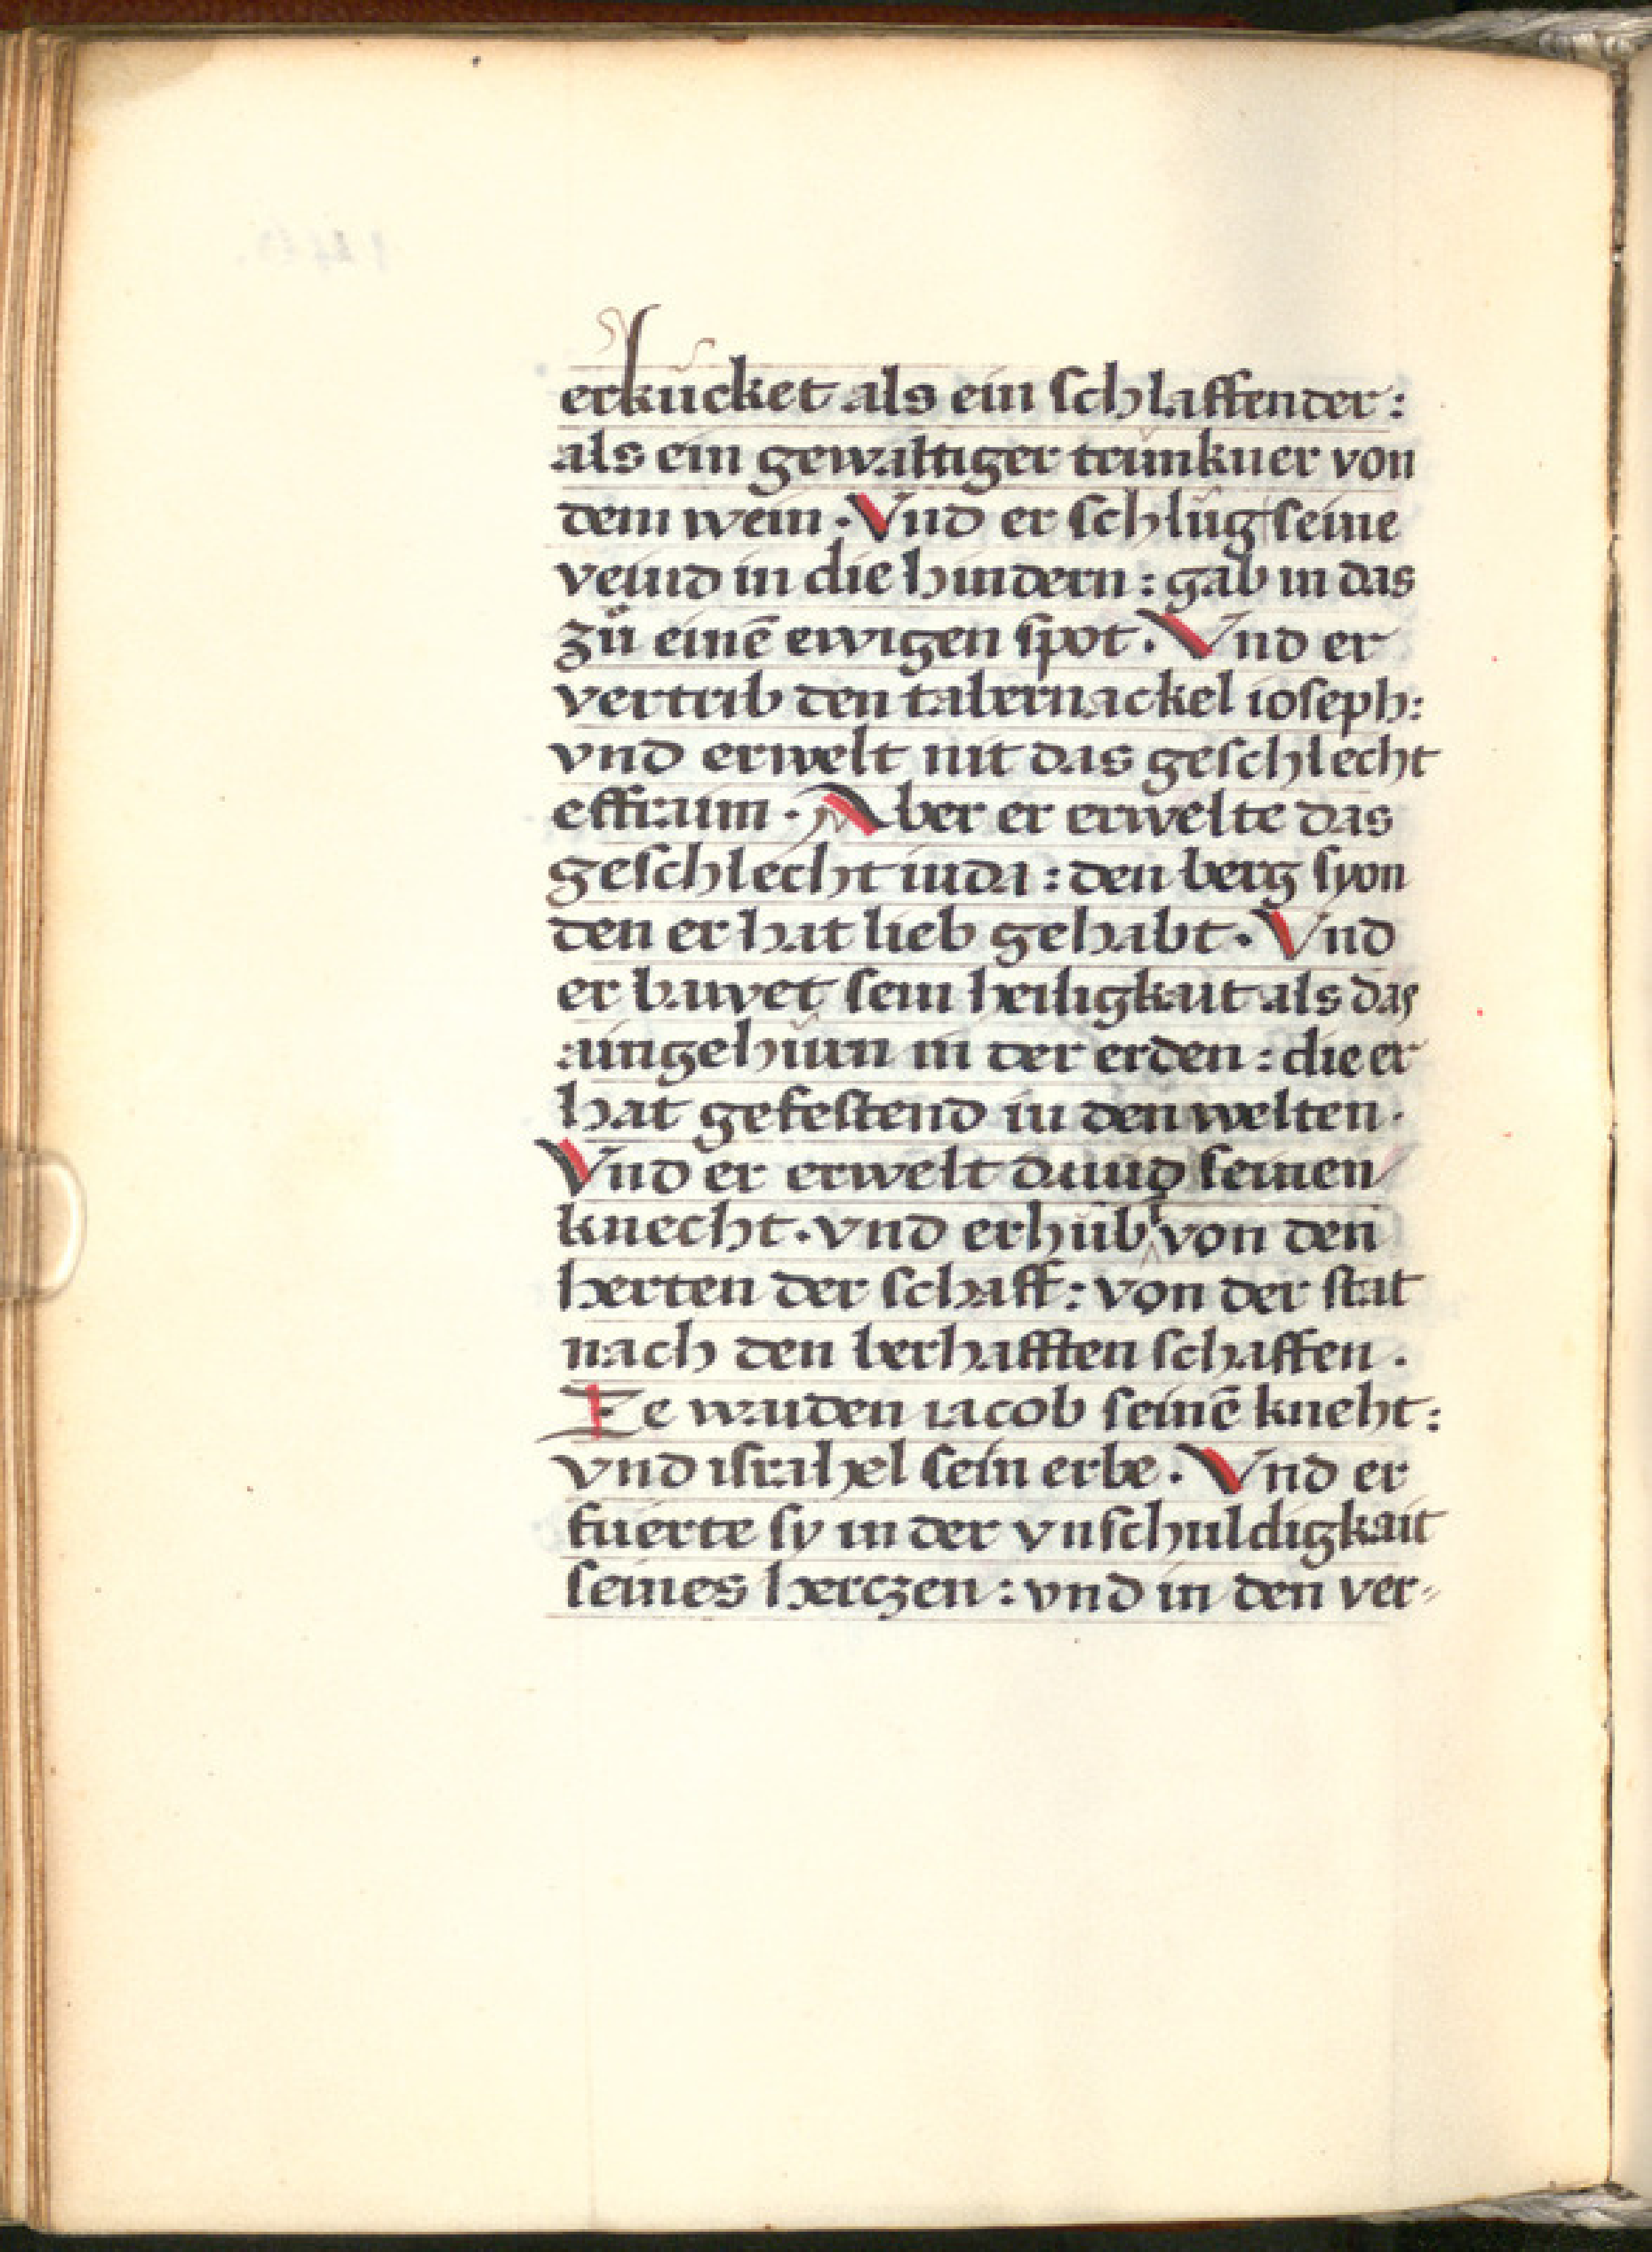 erkücket als ein schlaffender :
als ein gewaltiger trunkner von
dem wein · Vnd er schlůg seine
veind in die hindern : gab in das
zů einē ewigen spot · Vnd er
vertrib den tabernackel ioseph :
vnd erwelt nit das geschlecht
effraim · Aber er erwelte das
geschlecht iuda : den berg syon
den er hat lieb gehabt · Vnd
er bawet sein heiligkait als das
aingehürn in der erden : die er
hat gefestend in den welten ·
Vnd er erwelt dauid seinen
knecht · vnd erhůb von den
herten der schaff : von der stat
nach den berhafften schaffen ·
Ze waiden iacob seinē kneht :
vnd israhel sein erbe · Vnd er
fuerte sy in der vnschuldigkait
seines herczen : vnd in den ver-